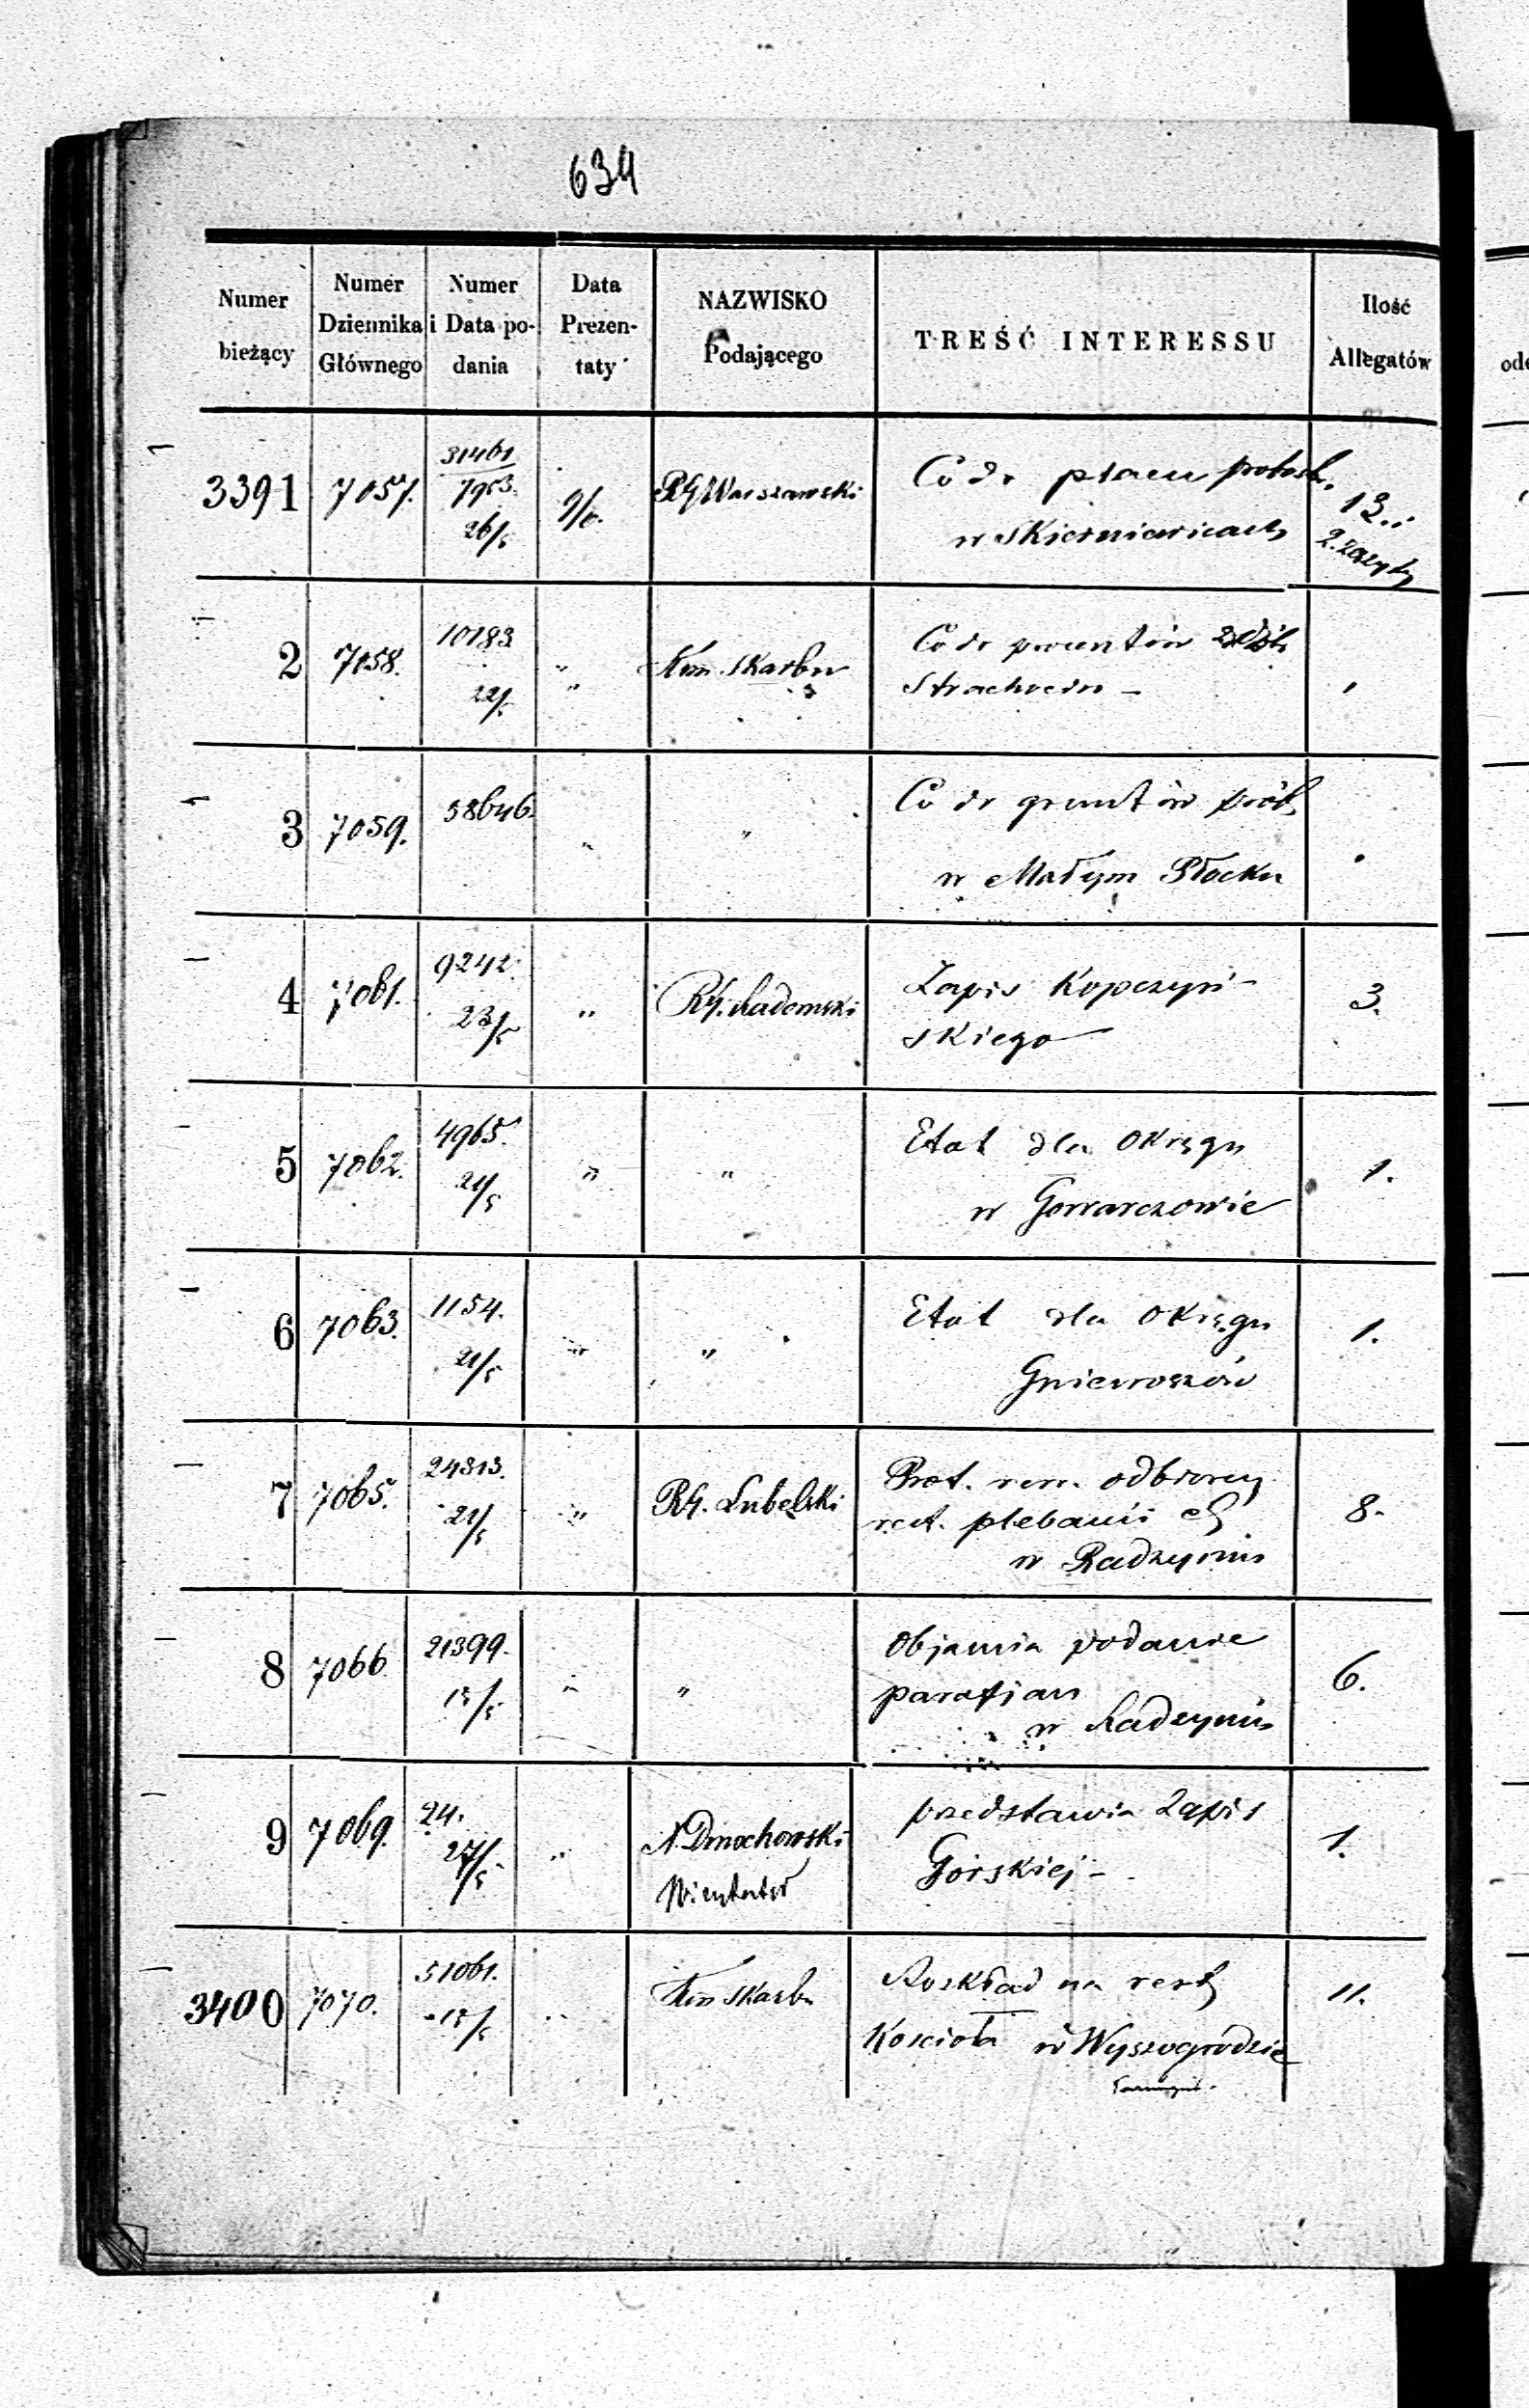 634
Numer bieżący
Numer Dziennika Głównego
Numer i Data podania
Data Prezentaty
NAZWISKO Podającego
TREŚĆ INTERESSU
Ilość Allegatów
3391 7057. 31461 9/6. RG Warszawski Co do placu probosz. 13.
7953. 26/5 w Skierniewicach 2. zeszyty
2 7058. 10183 " Kom. Skarbu Co do
22/5 " Strachocin –
3 7059. 38646. " " Co do gruntów prob.
w Małym Płocku
4 7061. 9242. " RG. Radomski Zapis Kopczyń- 3.
23/5 skiego
5 7062. 4965. " " Etat dla Okręgu 1.
21/5 w Gowarczowie
6 7063. 1154. " " Etat dla Okręgu 1.
21/5 Gniewoszów
7 7065. 24313. " RG. Lubelski Prot. odbiorczy 8.
21/5 plebanii
w Radzyniu
8 7066 21399. " " Objawia podanie 6.
15/5 parafian
w Radzyniu
9 7069. 24. " N. Dmochowski przedstawia Zapis 1.
27/5 Górskiej –
3400 7070. 51061. " Kom Skarbu Rozkład na rest. 11.
15/5 Kościoła w Wyszogrodzie